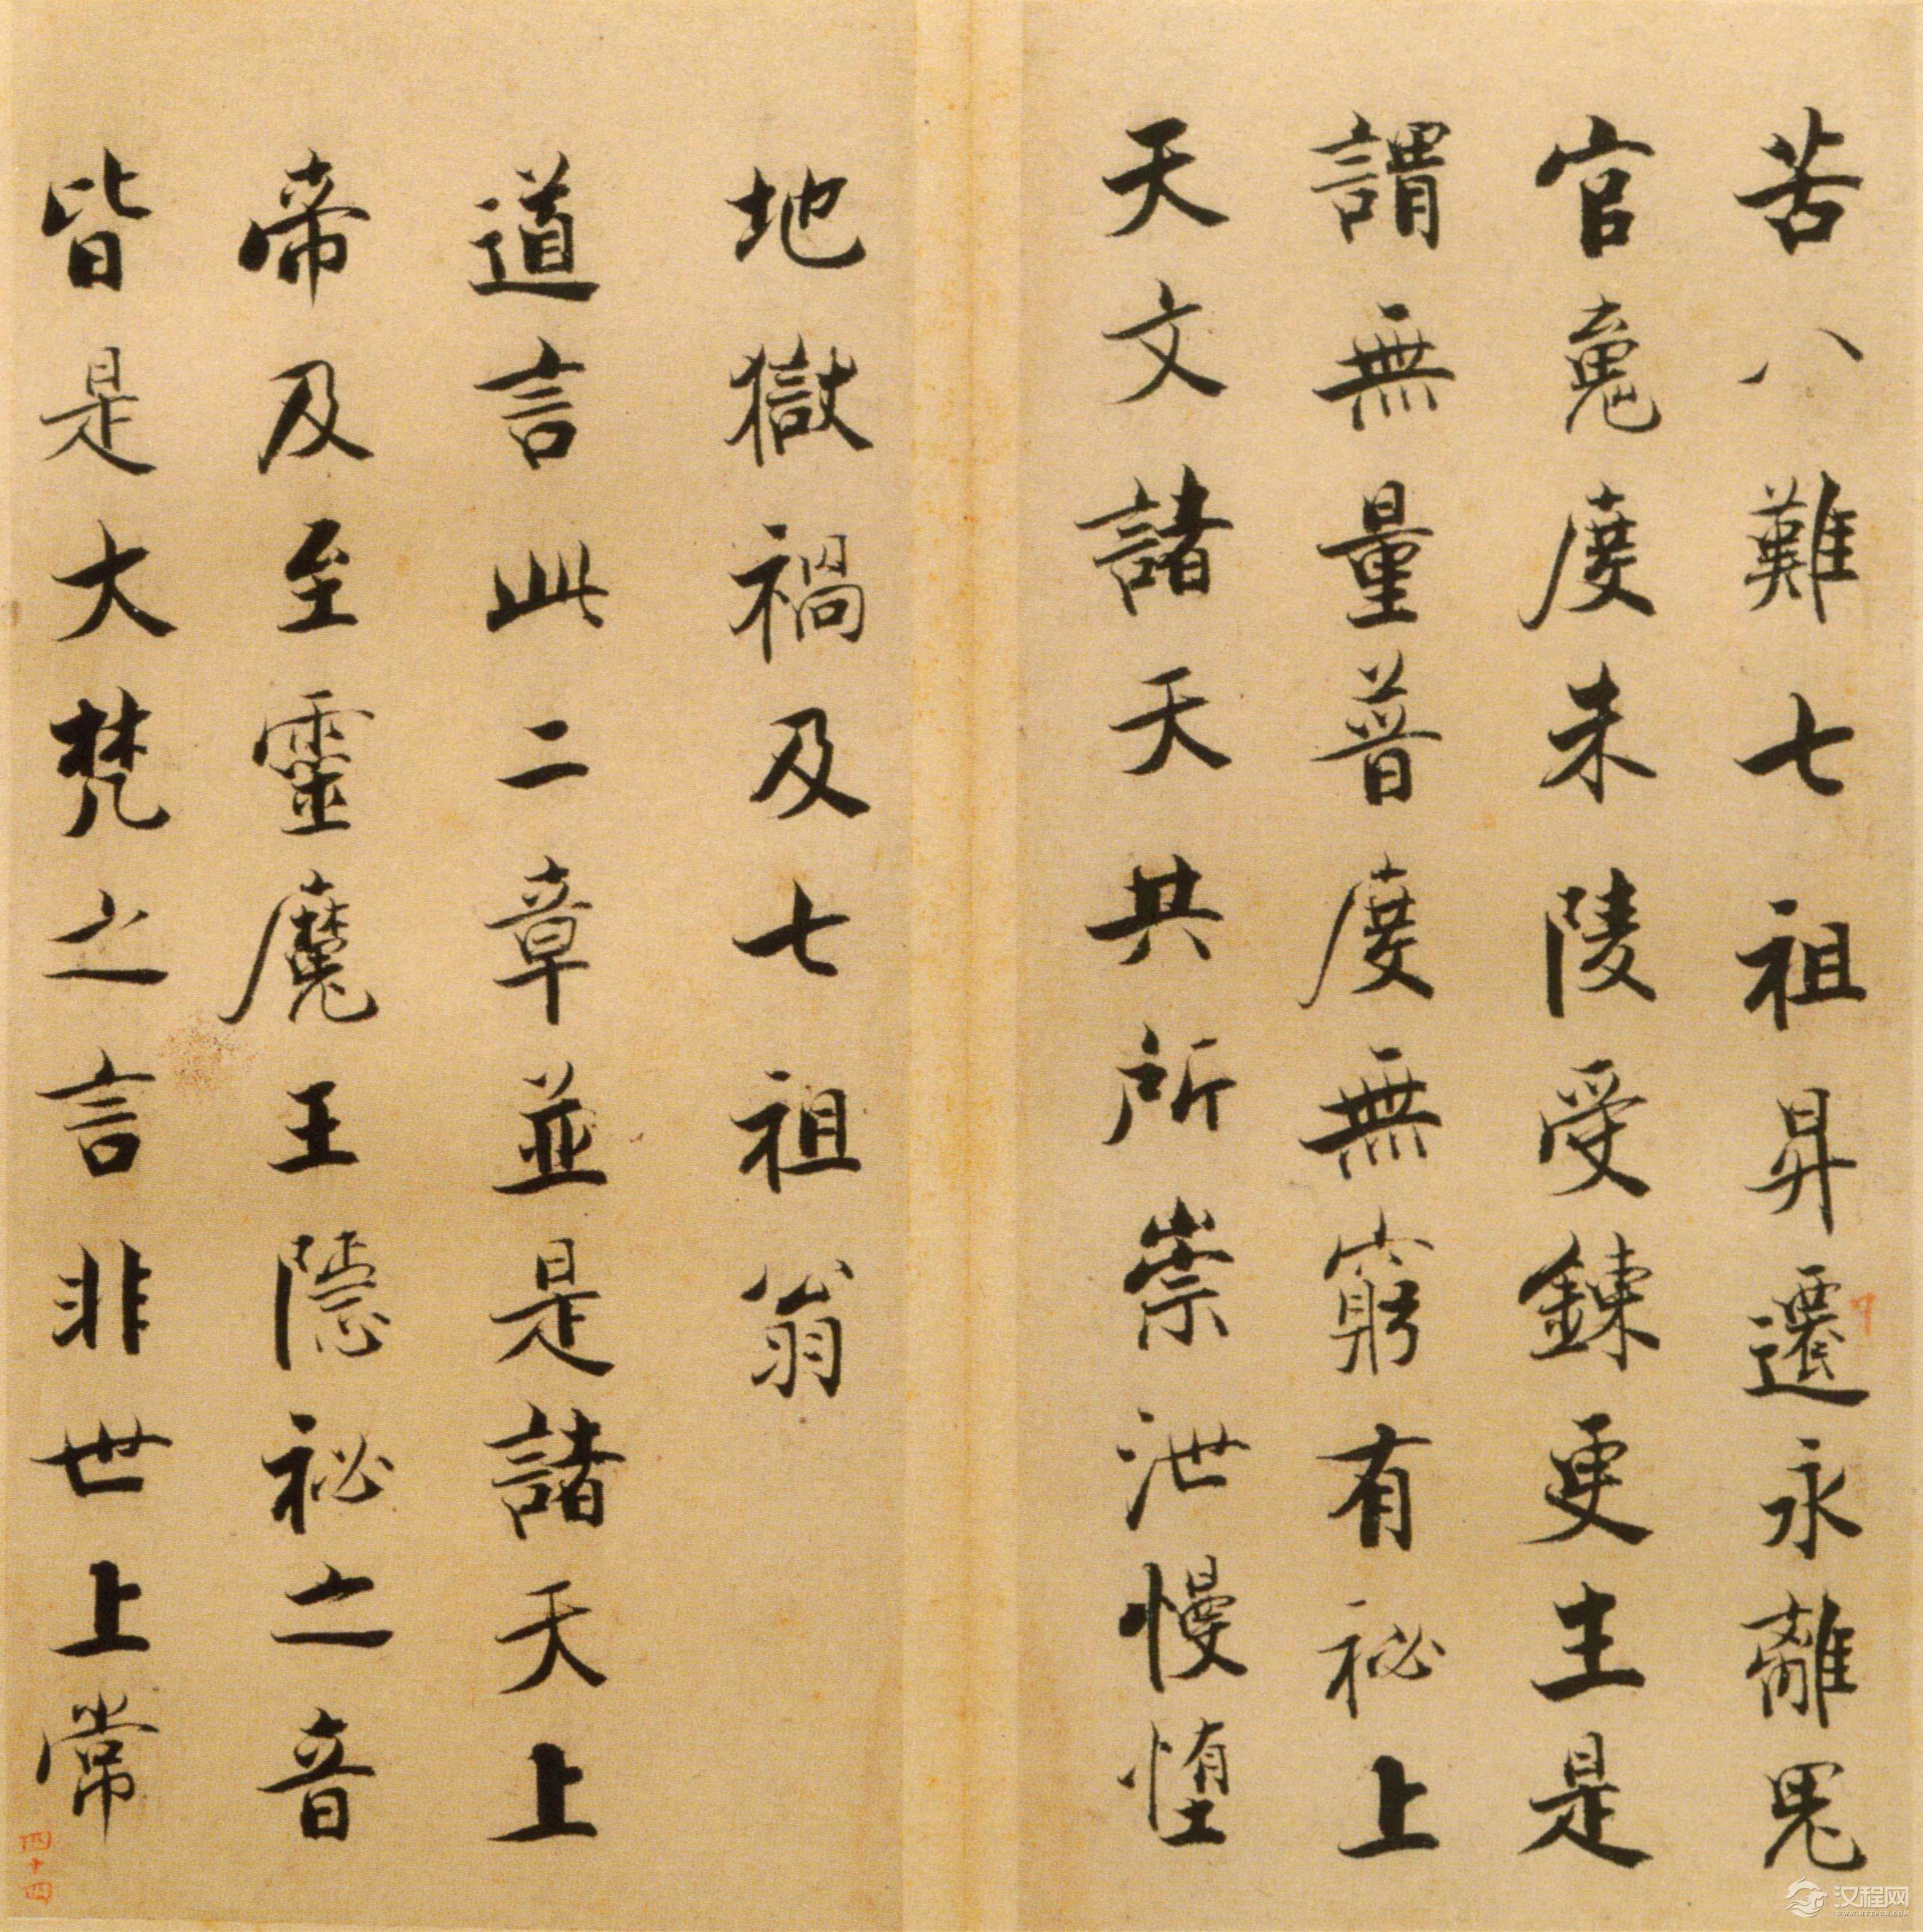 苦八難七祖昇遷永離鬼
官魂度朱陵受鍊更生是
謂無量普度無窮有祕上
天文諸天共所崇泄慢墮
地獄禍及七祖翁
道言此二章並是諸天上
帝及至靈魔王隱祕之音
皆是大梵之言非世上常
四十四
汉程网
WWW.HTTPCN.COM